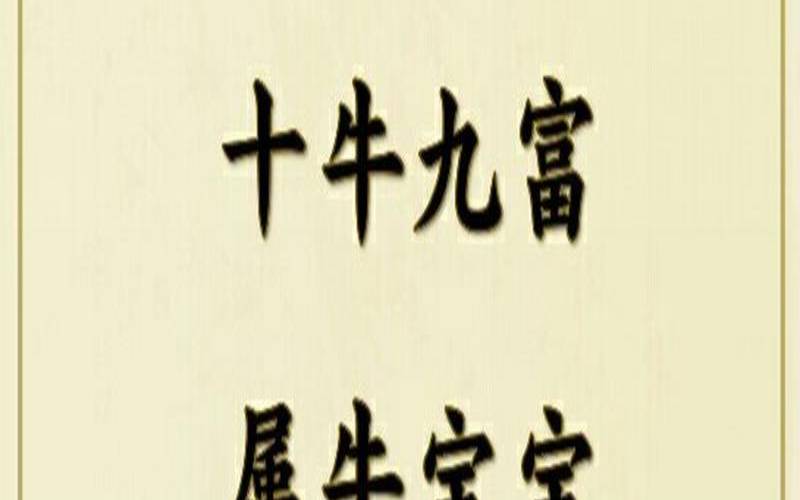 十牛九富
属牛宝宝